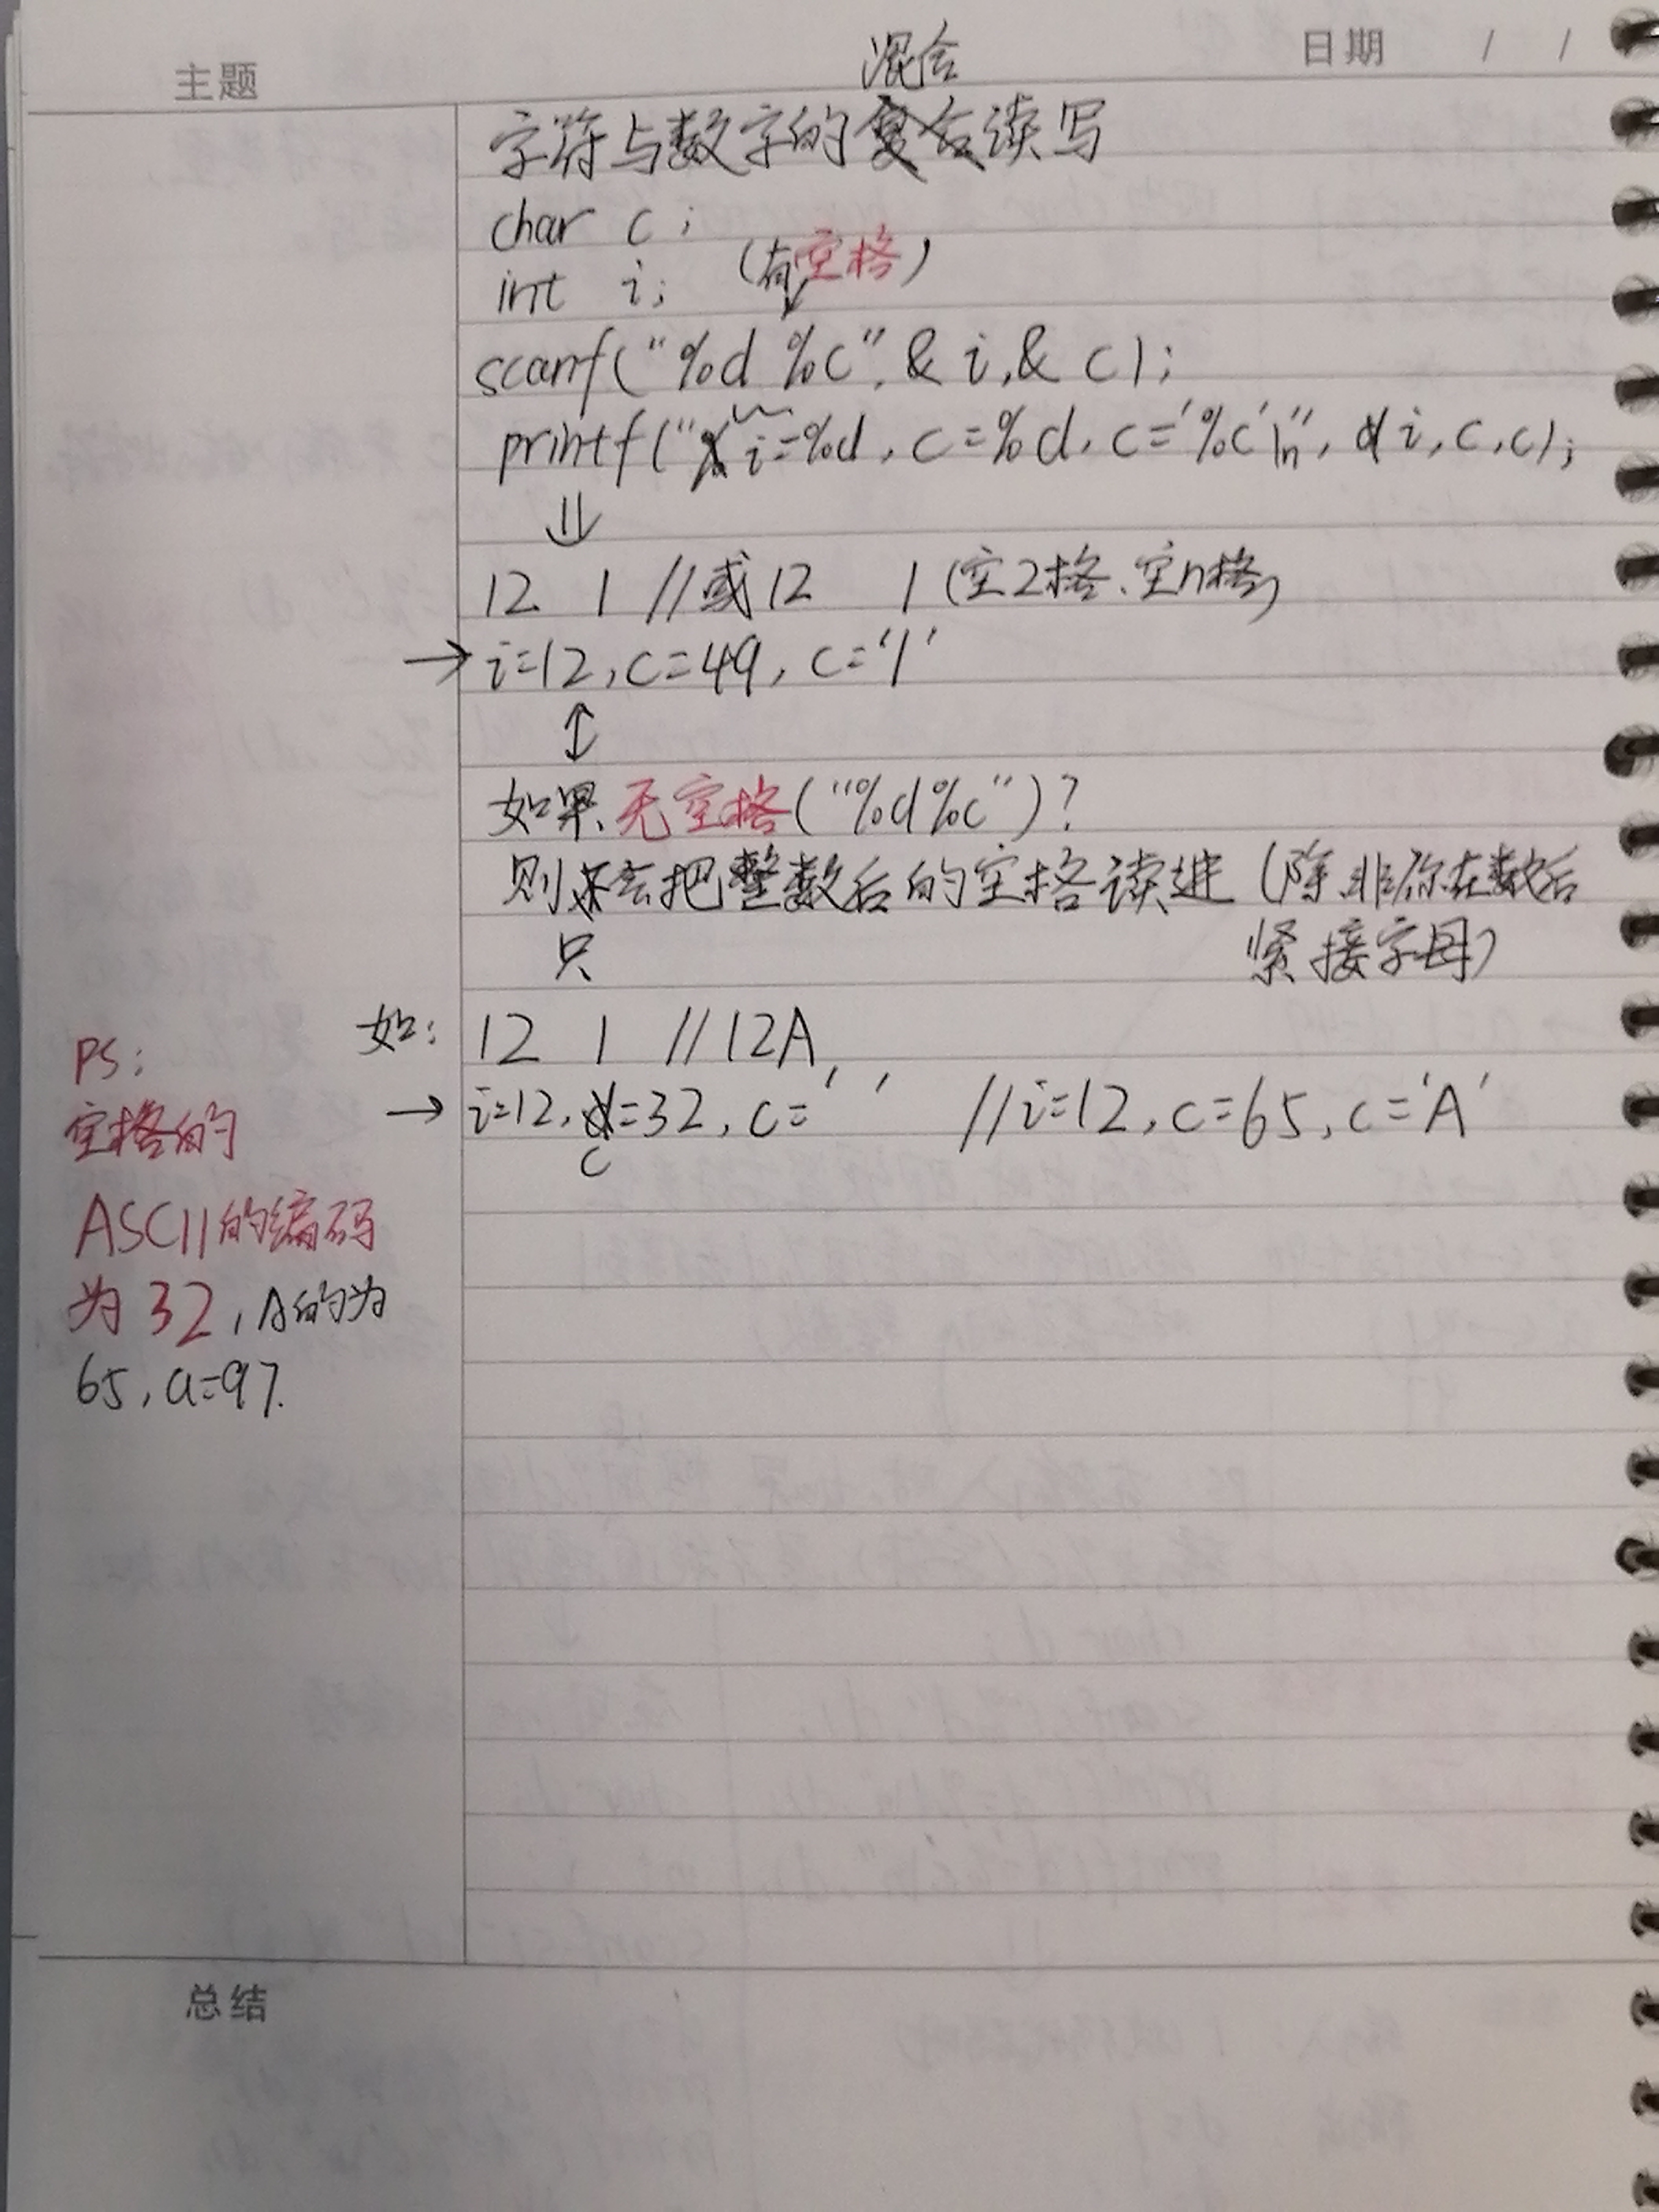 主题
日期 / /
混合
字符与数字的读写
char c;
int i; (有空格)
scanf("%d %c", &i, &c);
printf("i=%d, c=%d, c='%c'\n", i, c, c);
⇓
12 1 //或12 1 (空2格、空n格)
→ i=12, c=49, c='1'
↕
如果无空格("%d%c")?
则会把整数后的空格读进 (除非你在数后
只 紧接字母)
如: 12 1 //12A
→ i=12, =32, c=' ' //i=12, c=65, c='A'
c
PS:
空格的
ASCII的编码
为32, A的为
65, a=97.
总结